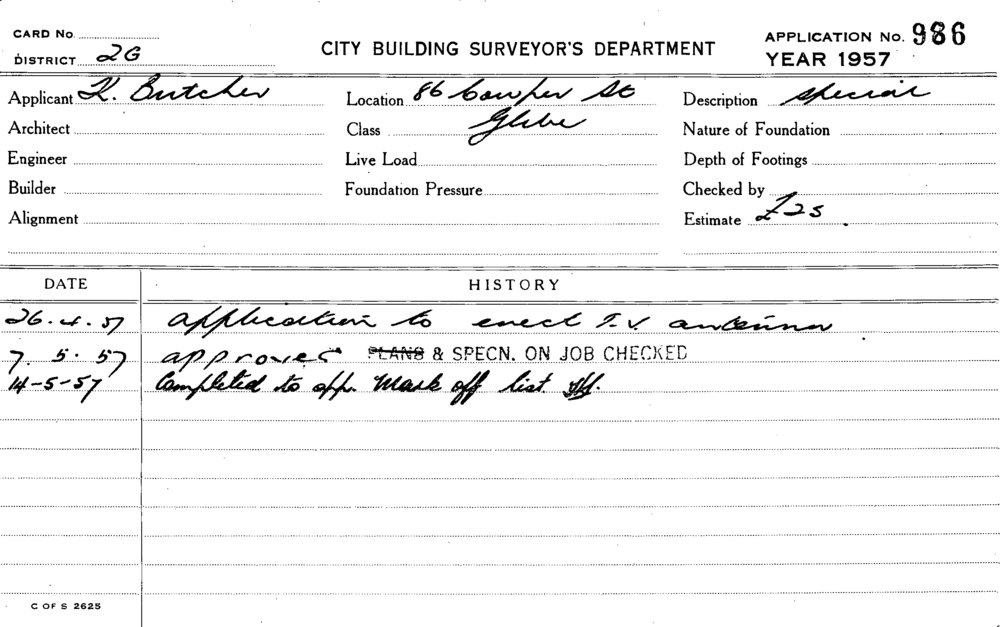 CARD No.
DISTRICT 2G
CITY BUILDING SURVEYOR'S DEPARTMENT
APPLICATION No. 986
YEAR 1957
Applicant K. Butcher Location 86 Cowper St Description special
Architect Class Glebe Nature of Foundation
Engineer Live Load Depth of Footings
Builder Foundation Pressure Checked by
Alignment Estimate £25
DATE HISTORY
26.4.57 application to erect T.V. antenna
7.5.57 approved PLANS & SPECN. ON JOB CHECKED
14-5-57 Completed to app. Mark off list
C OF S 2625